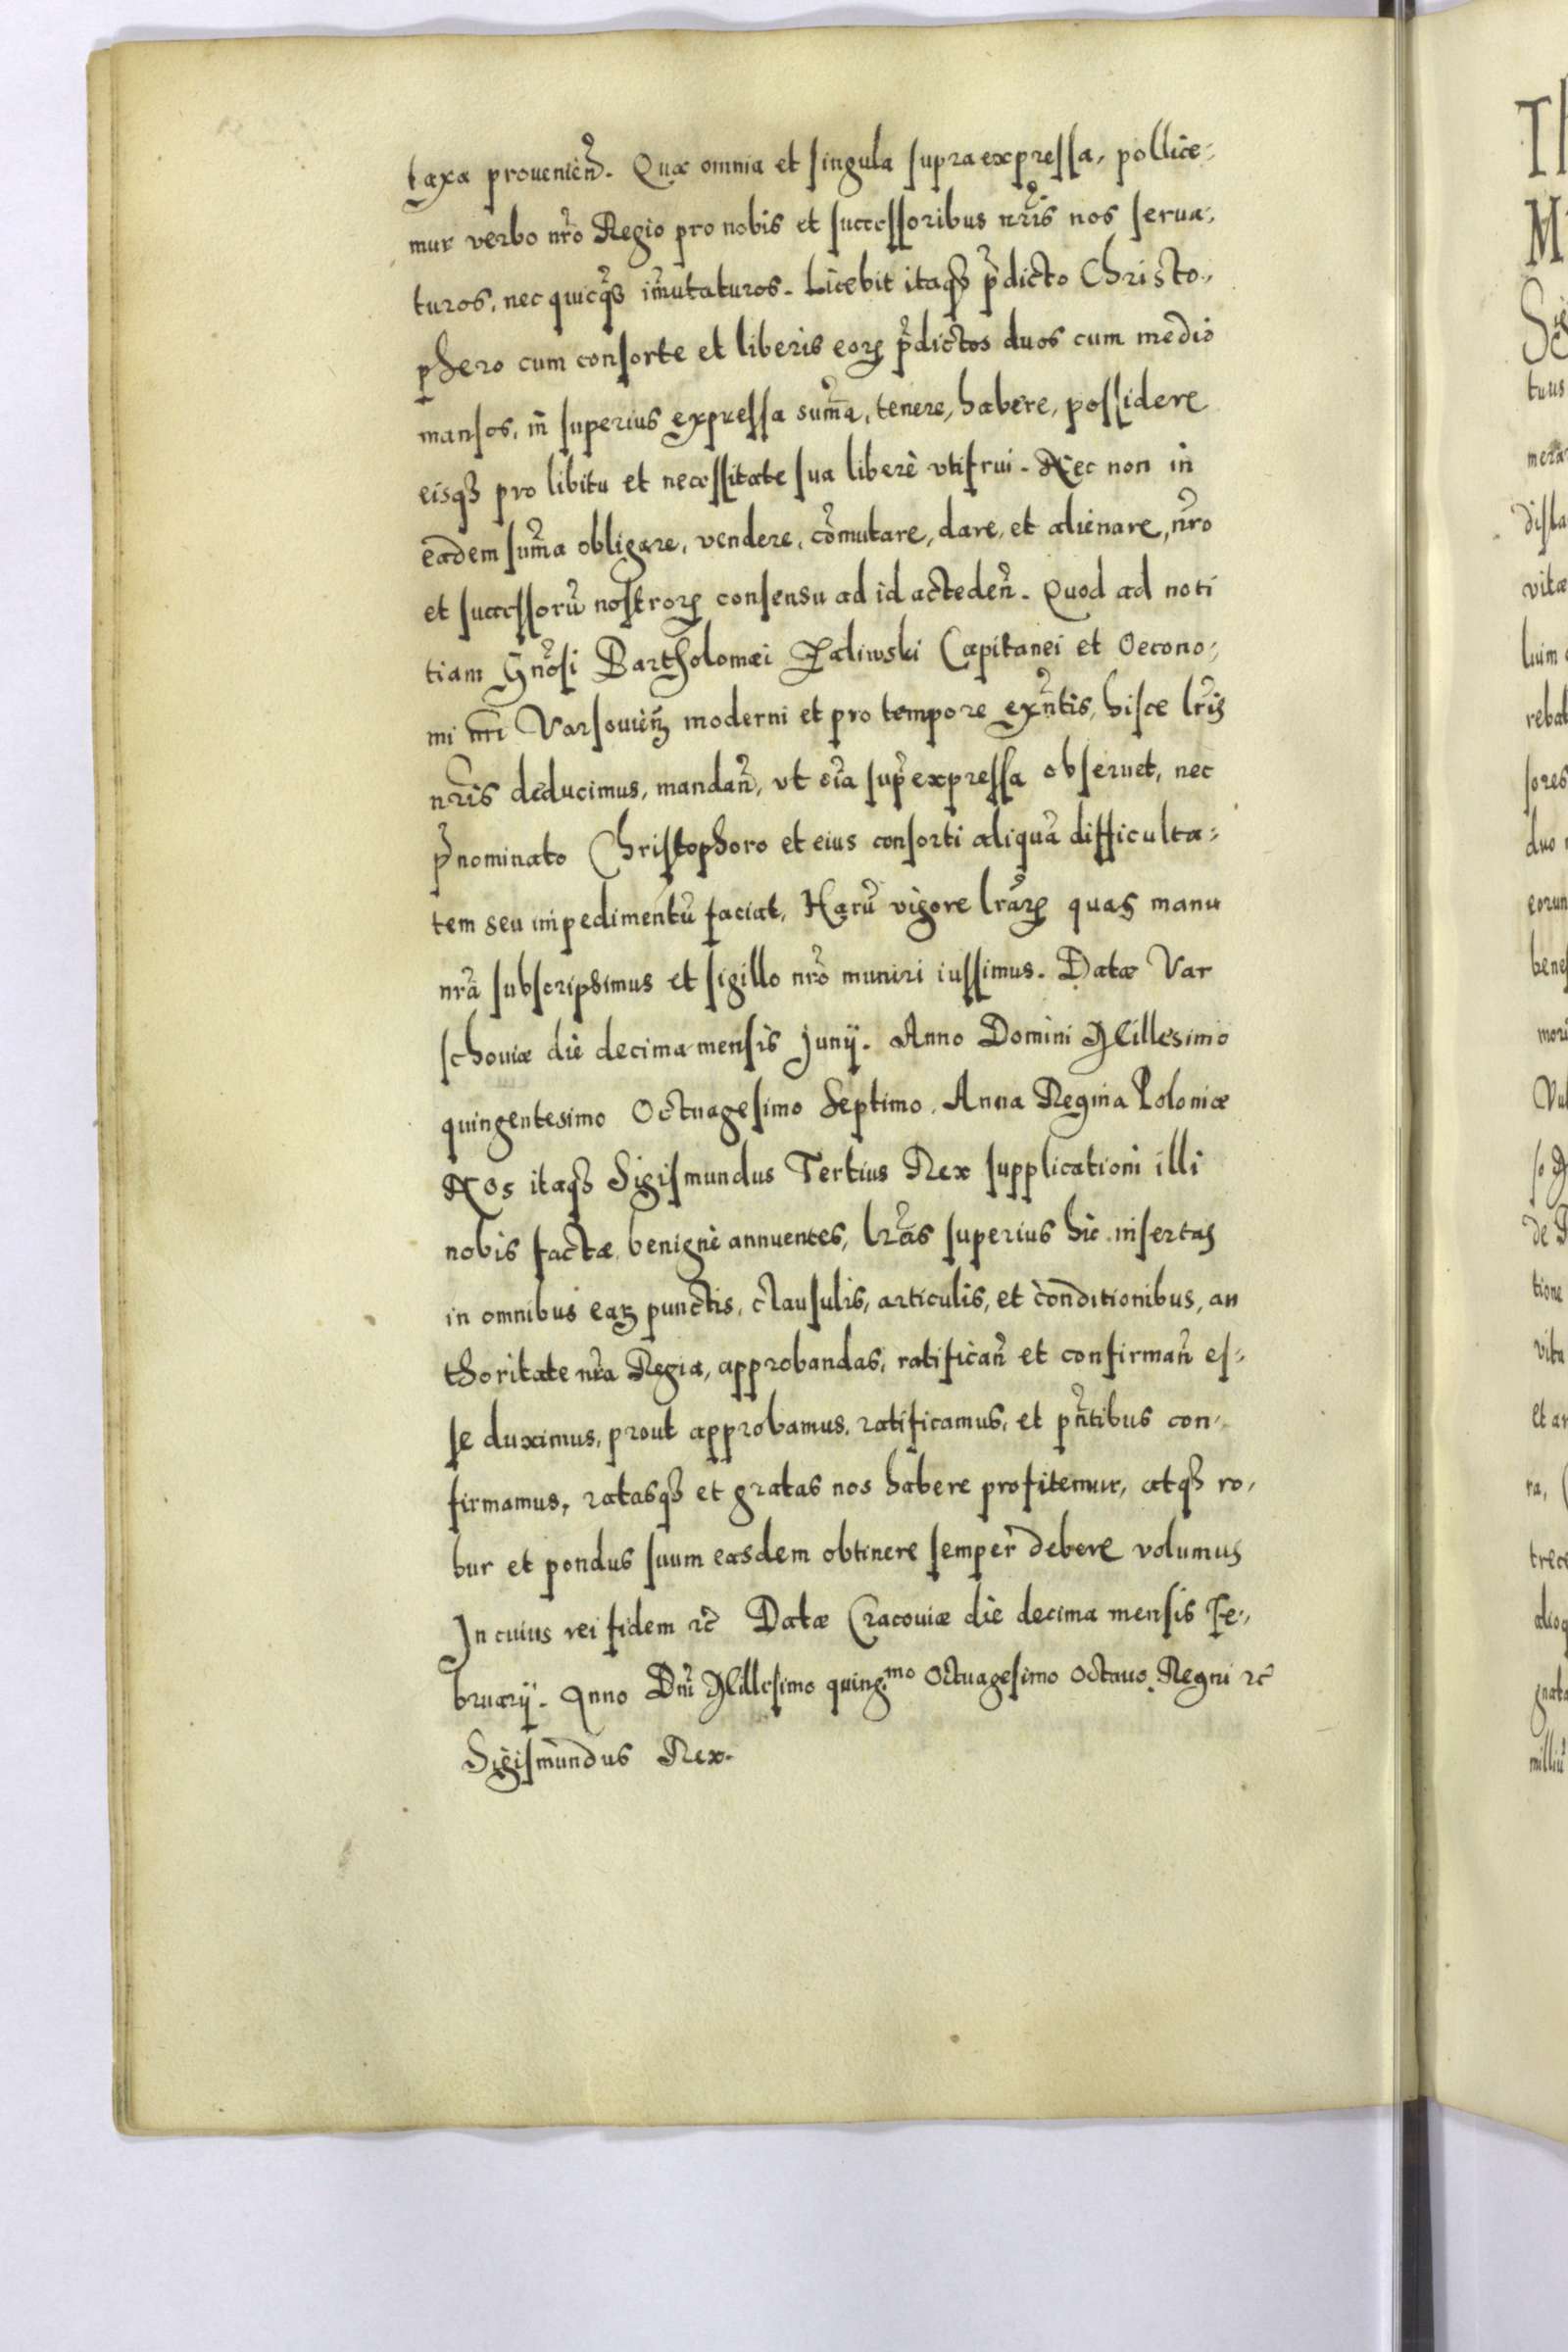 taxa prouenień. Quæ omnia et singula supra expressa, pollice-
mur verbo nr̃o Regio pro nobis et successoribus nr̃is nos serua-
turos, nec quicq̃ʒ im̃utaturos. Licebit itaqʒ p̃dicto Christo-
phero cum consorte et liberis eorꝝ p̃dictos duos cum medio
mansos, in superius expressa sum̃a, tenere, habere, possidere
eisqʒ pro libitu et necessitate sua liberè vtifrui. Nec non in
eadem sum̃a obligare, vendere, com̃utare, dare, et alienare, nr̃o
et successorũ nostrorꝝ consensu ad id acceden̄. Quod ad noti
tiam Gñosi Bartholomæi Zaliwski Capitanei et Oecono-
mi nr̃i Varsouien̄ moderni et pro tempore exñtis, hisce lr̃is
nr̃is deducimus, mandan̄, vt oĩa sup̃expressa obseruet, nec
p̃nominato Christophoro et eius consorti aliquã difficulta-
tem seu impedimentũ faciat, Harũ vigore lr̃arꝝ quas manu
nr̃a subscripsimus et sigillo nr̃o muniri iussimus. Datæ Var
schouiæ die decima mensis Junij. Anno Domini Millesimo
quingentesimo Octuagesimo Septimo. Anna Regina Poloniæ
Nos itaqʒ Sigismundus Tertius Rex supplicationi illi
nobis factæ benignè annuentes, lr̃as superius hic insertas
in omnibus earꝝ punctis, clausulis, articulis, et conditionibus, au
thoritate nr̃a Regia, approbandas, ratifican̄ et confirman̄ es-
se duximus, prout approbamus, ratificamus, et pñtibus con-
firmamus, ratasqʒ et gratas nos habere profitemur, atqʒ ro-
bur et pondus suum easdem obtinere semper debere volumus
In cuius rei fidem ⁊c̃ Datæ Cracouiæ die decima mensis Fe-
bruarij. Anno Dñi Millesimo quing.mo Octuagesimo Octauo. Regni ⁊c̃
Sigismundus Rex.